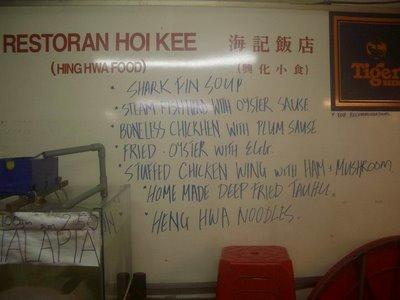 RESTORAN HOI KEE 海記飯店
(HING HWA FOOD) (興化小食)
Tiger
• SHARK FIN SOUP
• STEAM FISH HEAD WITH OYSTER SAUSE
• BONELESS CHICKHEN WITH PLUM SAUSE
• FRIED . OYSTER WITH EGG.
• STUFFED CHICKEN WING WITH HAM + MUSHROOM
• HOME MADE DEEP FRIED TAUHU.
• HENG HWA NOODLES.
TALAPIA